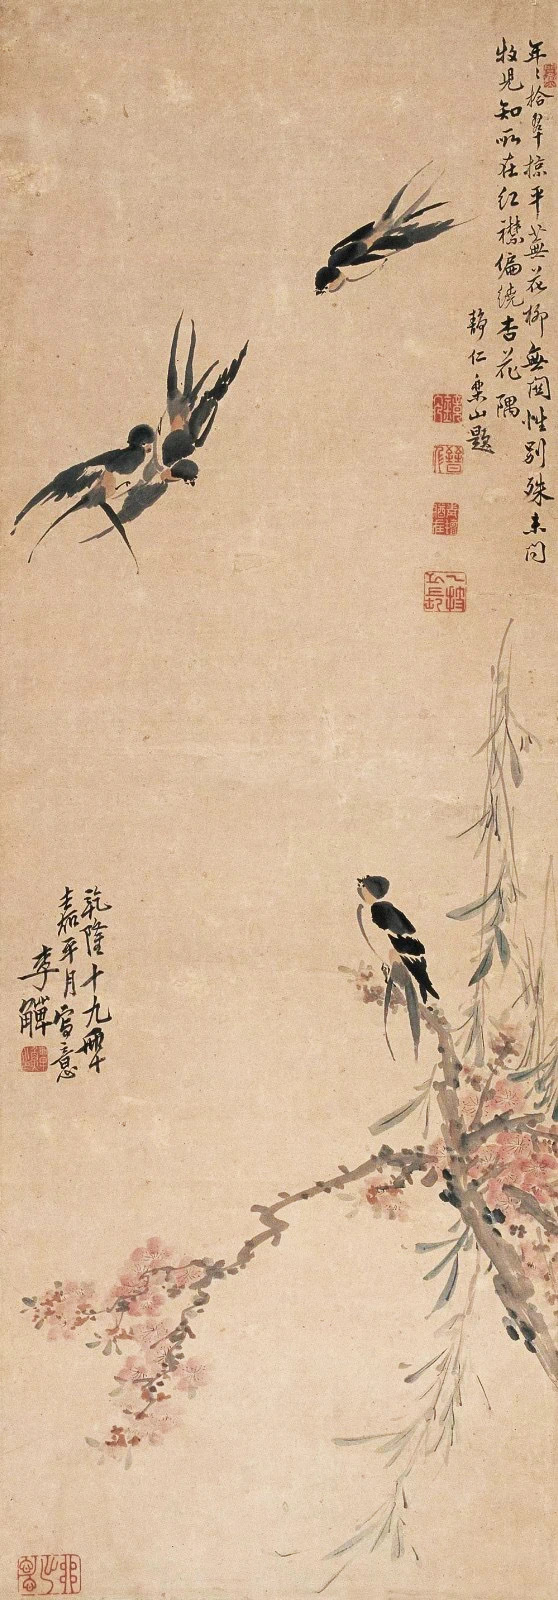 年〻拾翠掠平蕪花柳無關性別殊未问
牧児知所在红襟偏繞杏花隅
静仁桒山題
乾隆十九年
嘉平月寫意
李觶